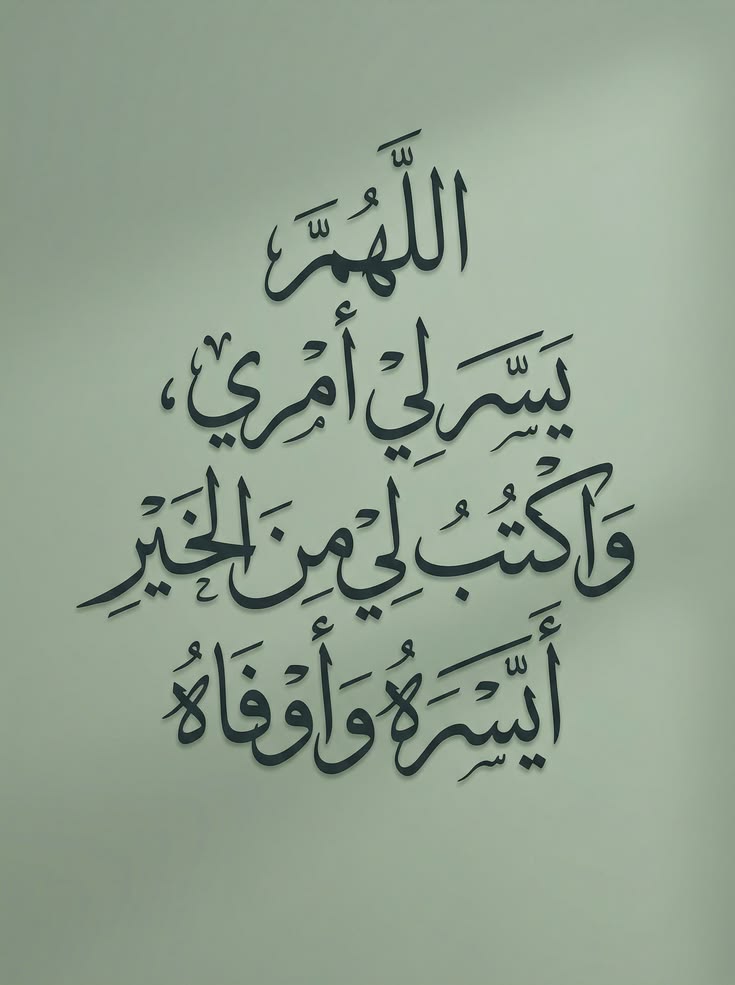 اللَّهُمَّ
يَسِّرْ لِيْ أَمْرِي،
وَاكْتُبْ لِيْ مِنَ الْخَيْرِ
أَيْسَرَهُ وَأَوْفَاهُ